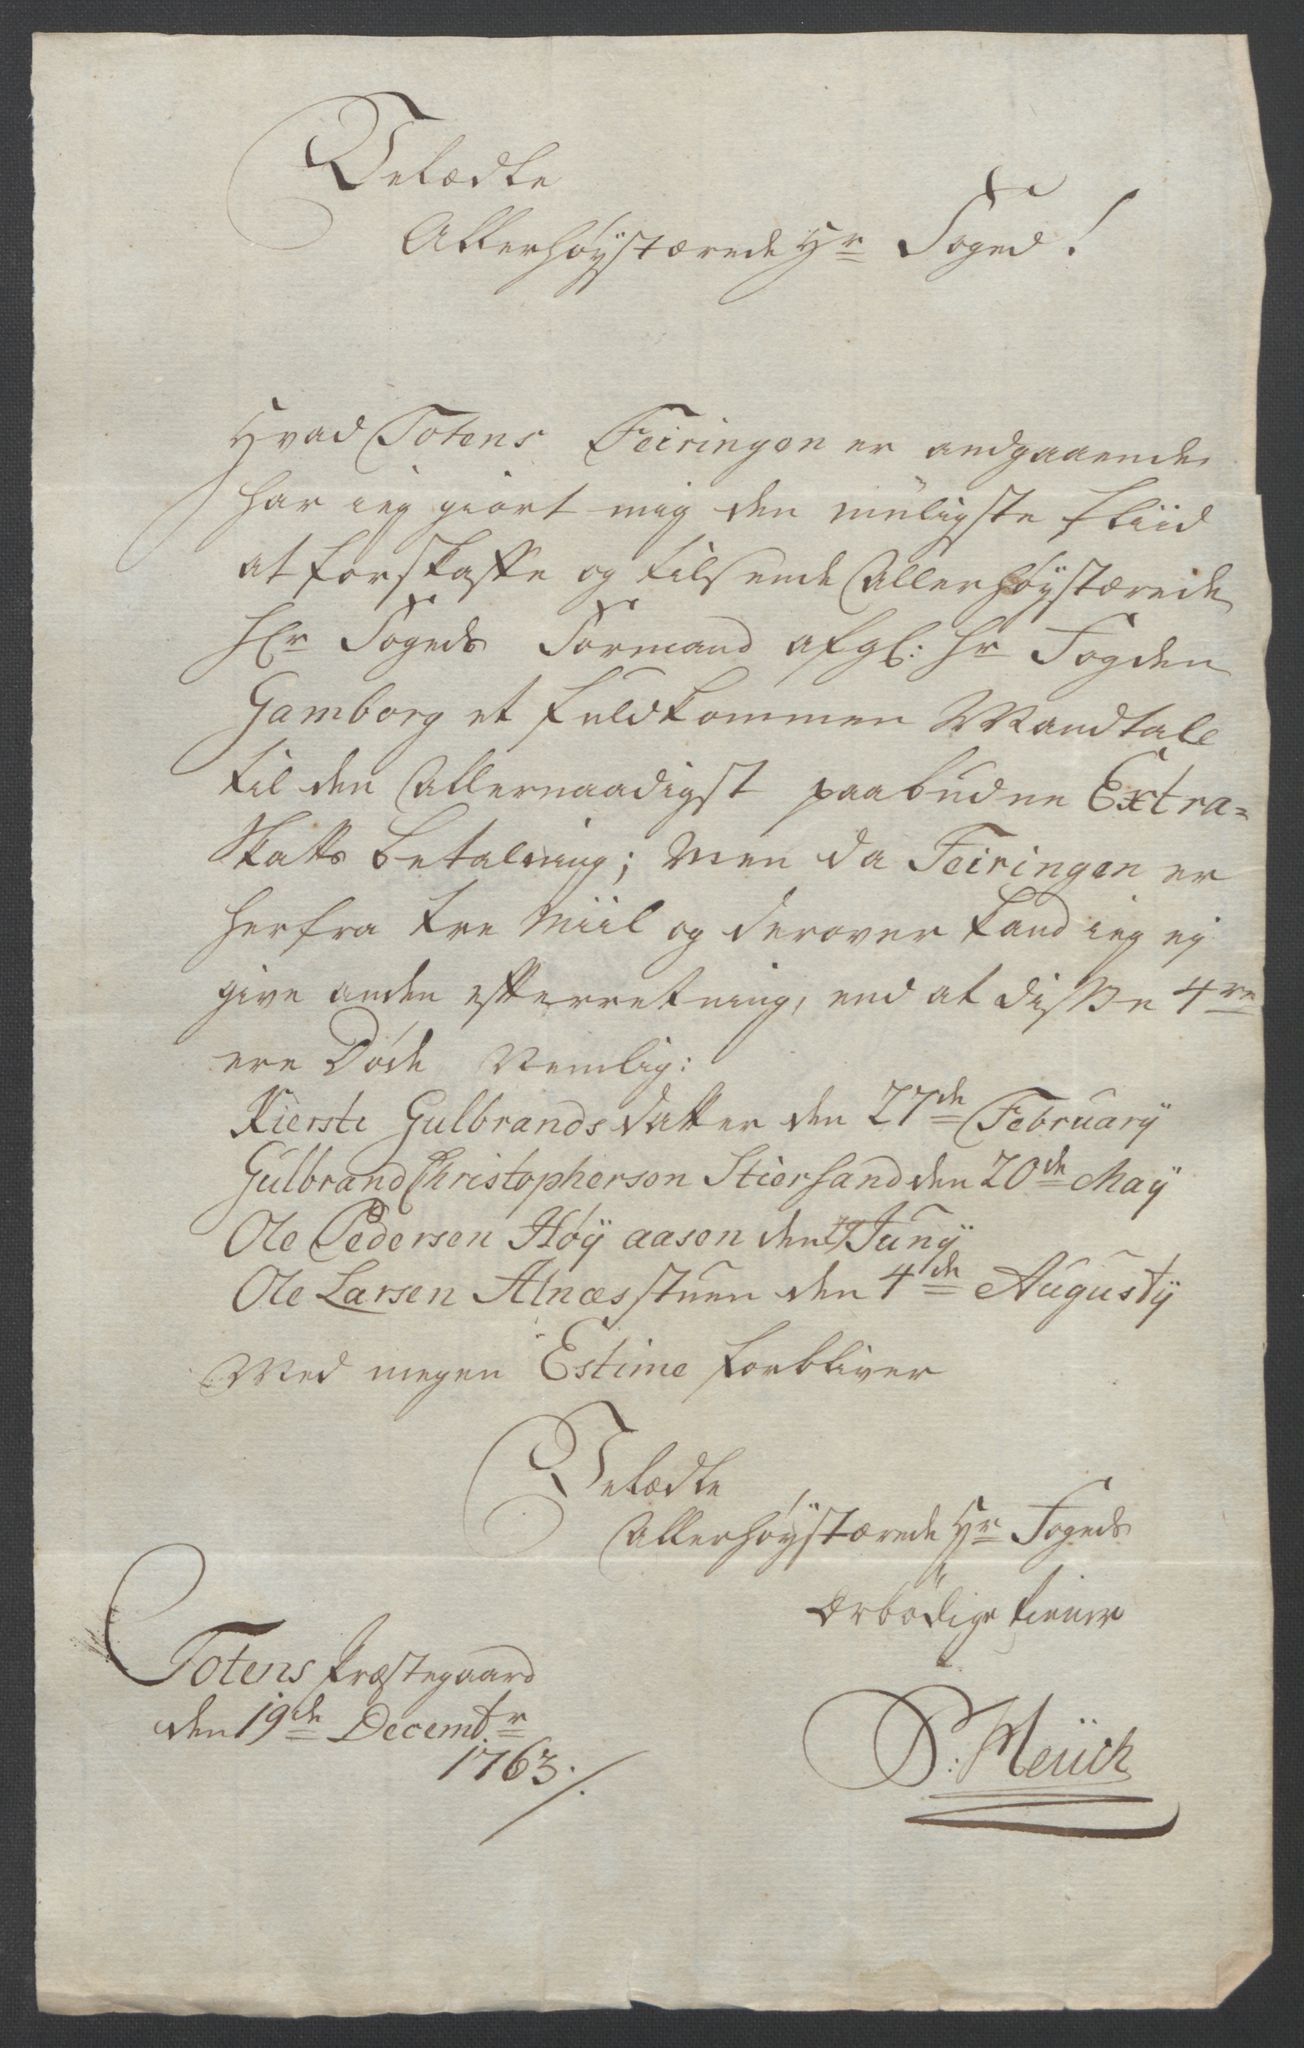 Velædle
Allerhøystærede Hr Foged!
Hvad Totens Feiringen er andgaaende
har ieg giort mig den muligste fliid
at forskaffe og tilsende Allerhøystærede
Hr Fogeds Formand afgl: Hr Fogden
Gamborg et fuldkommen Mandtall
til den Allernaadigst paabudne Extra-
Skatts betalning; Men da Feiringen er
herfra tre Miil og derover kand ieg ej
give anden efterretning, end at disse 4re
ere Døde Nemlig:
Kiersti Gulbrands datter den 27de February
Gulbrand Christopherson Stiersand den 20de May
Ole Pedersen Høy aasen den Juny
Ole Larsen Alnæsstuen den 4de Augusty
Med megen Estime forbliver
Velædle
Allerhøystærede Hr Fogeds
ærbødige tiener
Totens Præstegaard
den 19de Decembr
1763.
P: Meüch